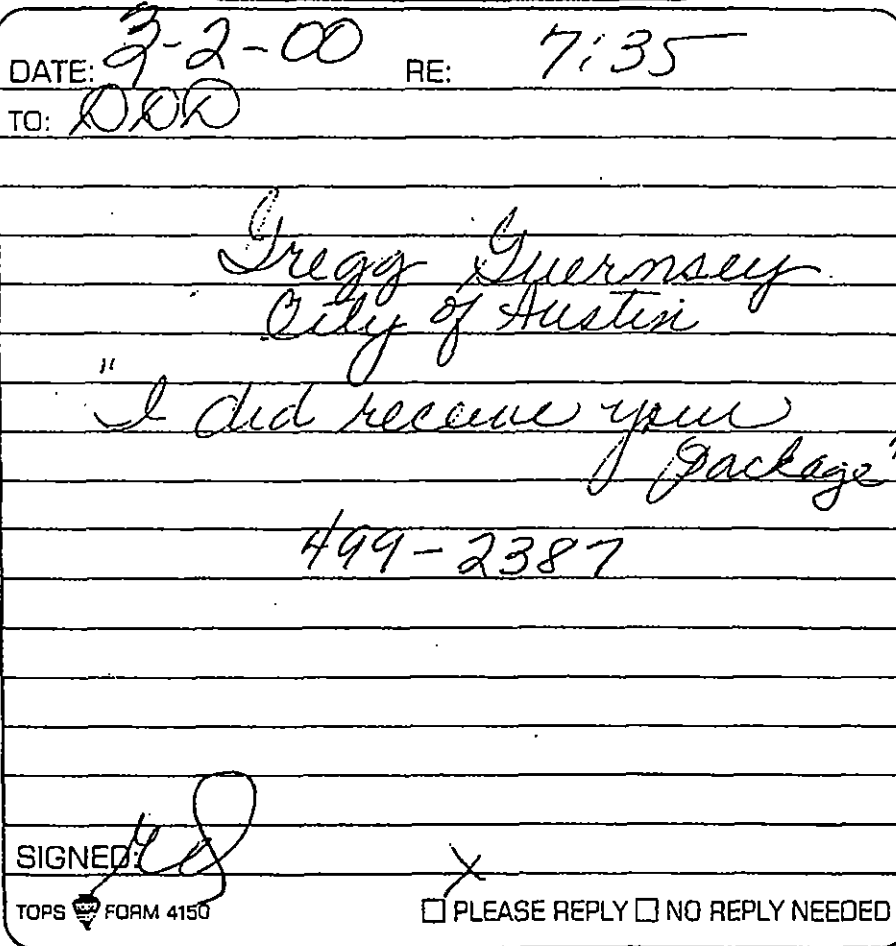 DATE: 3-2-00 RE: 7:35
TO: DDD
Gregg Guernsey
City of Austin
"I did receive your
package"
499-2387
SIGNED:
X
TOPS FORM 4150 ☐ PLEASE REPLY ☐ NO REPLY NEEDED